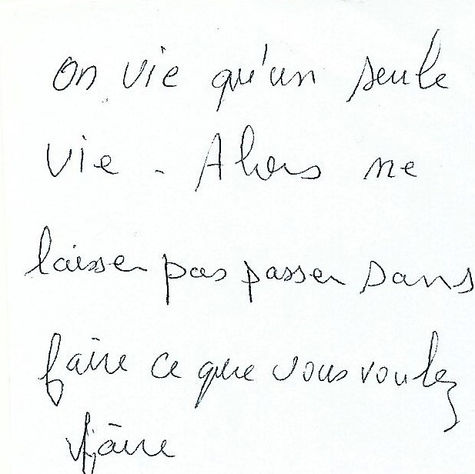 on vie qu'un seule
vie - Alors ne
laisser pas passer sans
faire ce que vous voulez
fàire